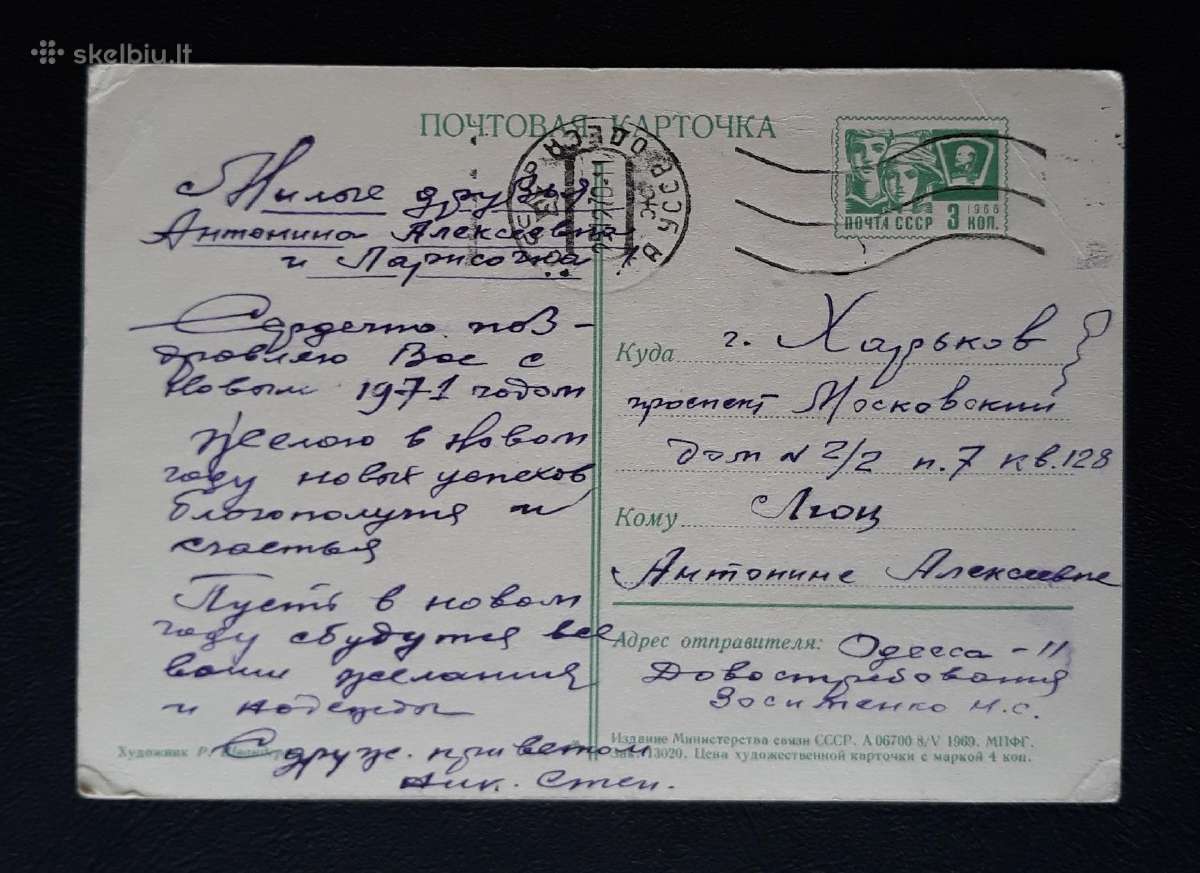 skelbiu.lt
ПОЧТОВАЯ КАРТОЧКА
ОДЕССА
УССР
ПОЧТА СССР 1966 3 КОП.
Милые друзья
Антонина Алексеевна
и Ларисочка!
Сердечно поз-
дравляю Вас с
Новым 1971 годом
Желаю в Новом
году новых успехов
благополучия и
счастья
Пусть в новом
году сбудутся все
ваши желания
и надежды
С друж. приветом
Ник. Степ.
Художник Р.
Куда г. Харьков
проспект Московский
дом № 2/2 п. 7 кв. 128
Кому Лющ
Антонине Алексеевне
Адрес отправителя: Одесса - 11
Довостребования
Н. С.
Издание Министерства связи СССР. А 06700 8/V 1969. МПФГ.
Зак. 13020. Цена художественной карточки с маркой 4 коп.